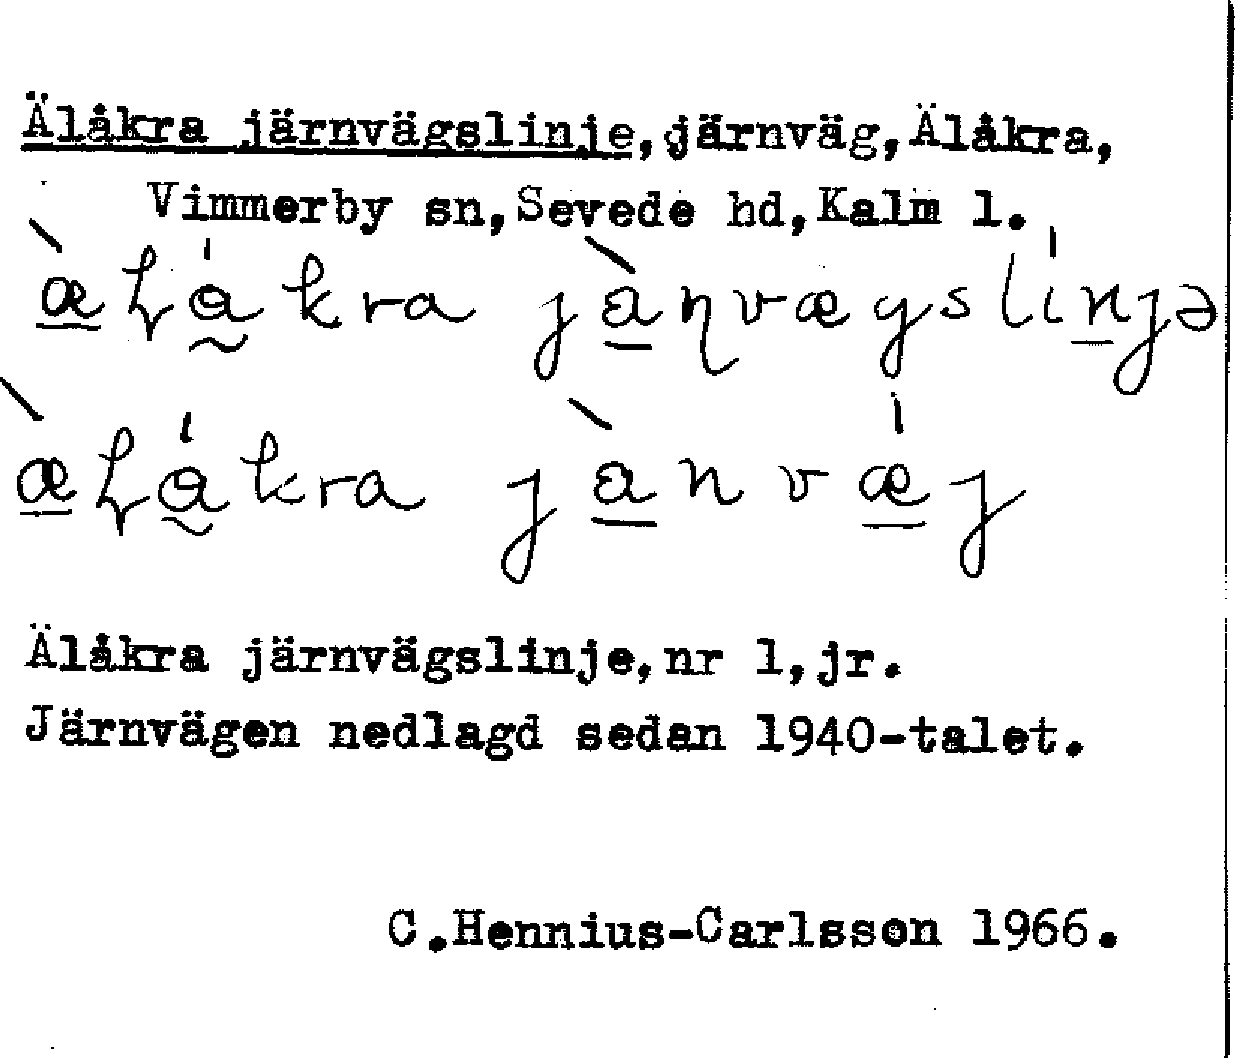 Älåkra järnvägslinje, järnväg, Älåkra,
Vimmerby sn, Sevede hd, Kalm l.
Älåkra järnvägslinje, nr 1, jr.
Järnvägen nedlagd sedan 1940-talet.
C.Hennius-Carlsson 1966.